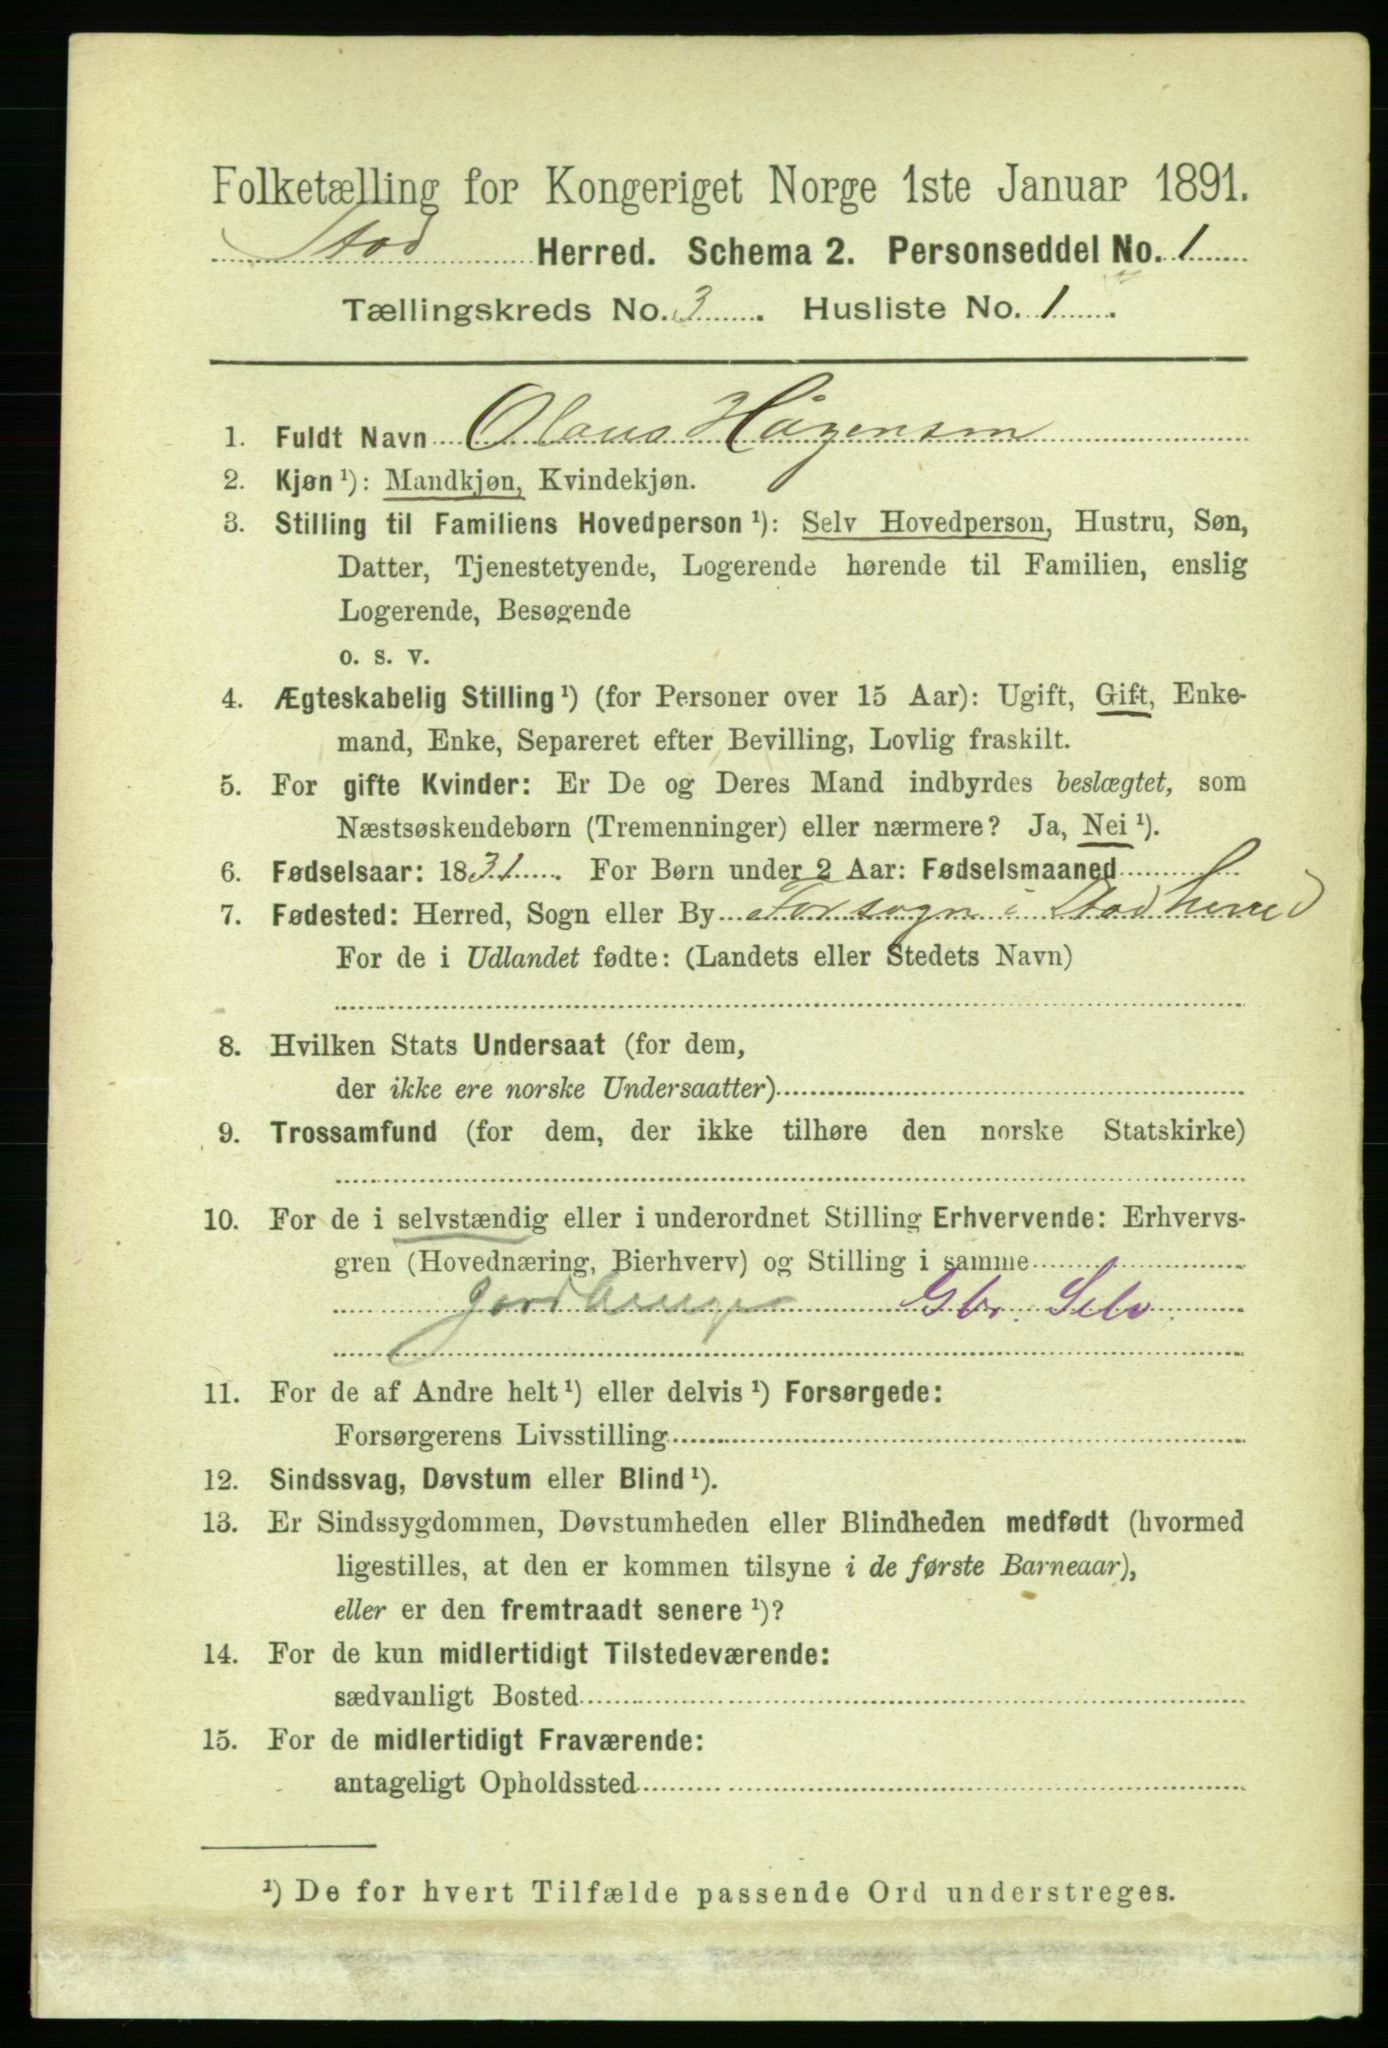 Folketælling for Kongeriget Norge 1ste Januar 1891.
Stod Herred. Schema 2. Personseddel No. 1
Tællingskreds No. 3. Husliste No. 1.
1. Fuldt Navn Olaus Hågensen
2. Kjøn ¹): Mandkjøn, Kvindekjøn.
3. Stilling til Familiens Hovedperson ¹): Selv Hovedperson, Hustru, Søn,
Datter, Tjenestetyende, Logerende hørende til Familien, enslig
Logerende, Besøgende
o. s. v.
4. Ægteskabelig Stilling ¹) (for Personer over 15 Aar): Ugift, Gift, Enke-
mand, Enke, Separeret efter Bevilling, Lovlig fraskilt.
5. For gifte Kvinder: Er De og Deres Mand indbyrdes beslægtet, som
Næstsøskendebørn (Tremenninger) eller nærmere? Ja, Nei ¹).
6. Fødselsaar: 1831. For Børn under 2 Aar: Fødselsmaaned
7. Fødested: Herred, Sogn eller By Forsogn i Stod herred
For de i Udlandet fødte: (Landets eller Stedets Navn)
8. Hvilken Stats Undersaat (for dem,
der ikke ere norske Undersaatter)
9. Trossamfund (for dem, der ikke tilhøre den norske Statskirke)
10. For de i selvstændig eller i underordnet Stilling Erhvervende: Erhvervs-
gren (Hovednæring, Bierhverv) og Stilling i samme
Jordbruger Gbr. Selv.
11. For de af Andre helt ¹) eller delvis ¹) Forsørgede:
Forsørgerens Livsstilling
12. Sindssvag, Døvstum eller Blind ¹).
13. Er Sindssygdommen, Døvstumheden eller Blindheden medfødt (hvormed
ligestilles, at den er kommen tilsyne i de første Barneaar),
eller er den fremtraadt senere ¹)?
14. For de kun midlertidigt Tilstedeværende:
sædvanligt Bosted
15. For de midlertidigt Fraværende:
antageligt Opholdssted
¹) De for hvert Tilfælde passende Ord understreges.